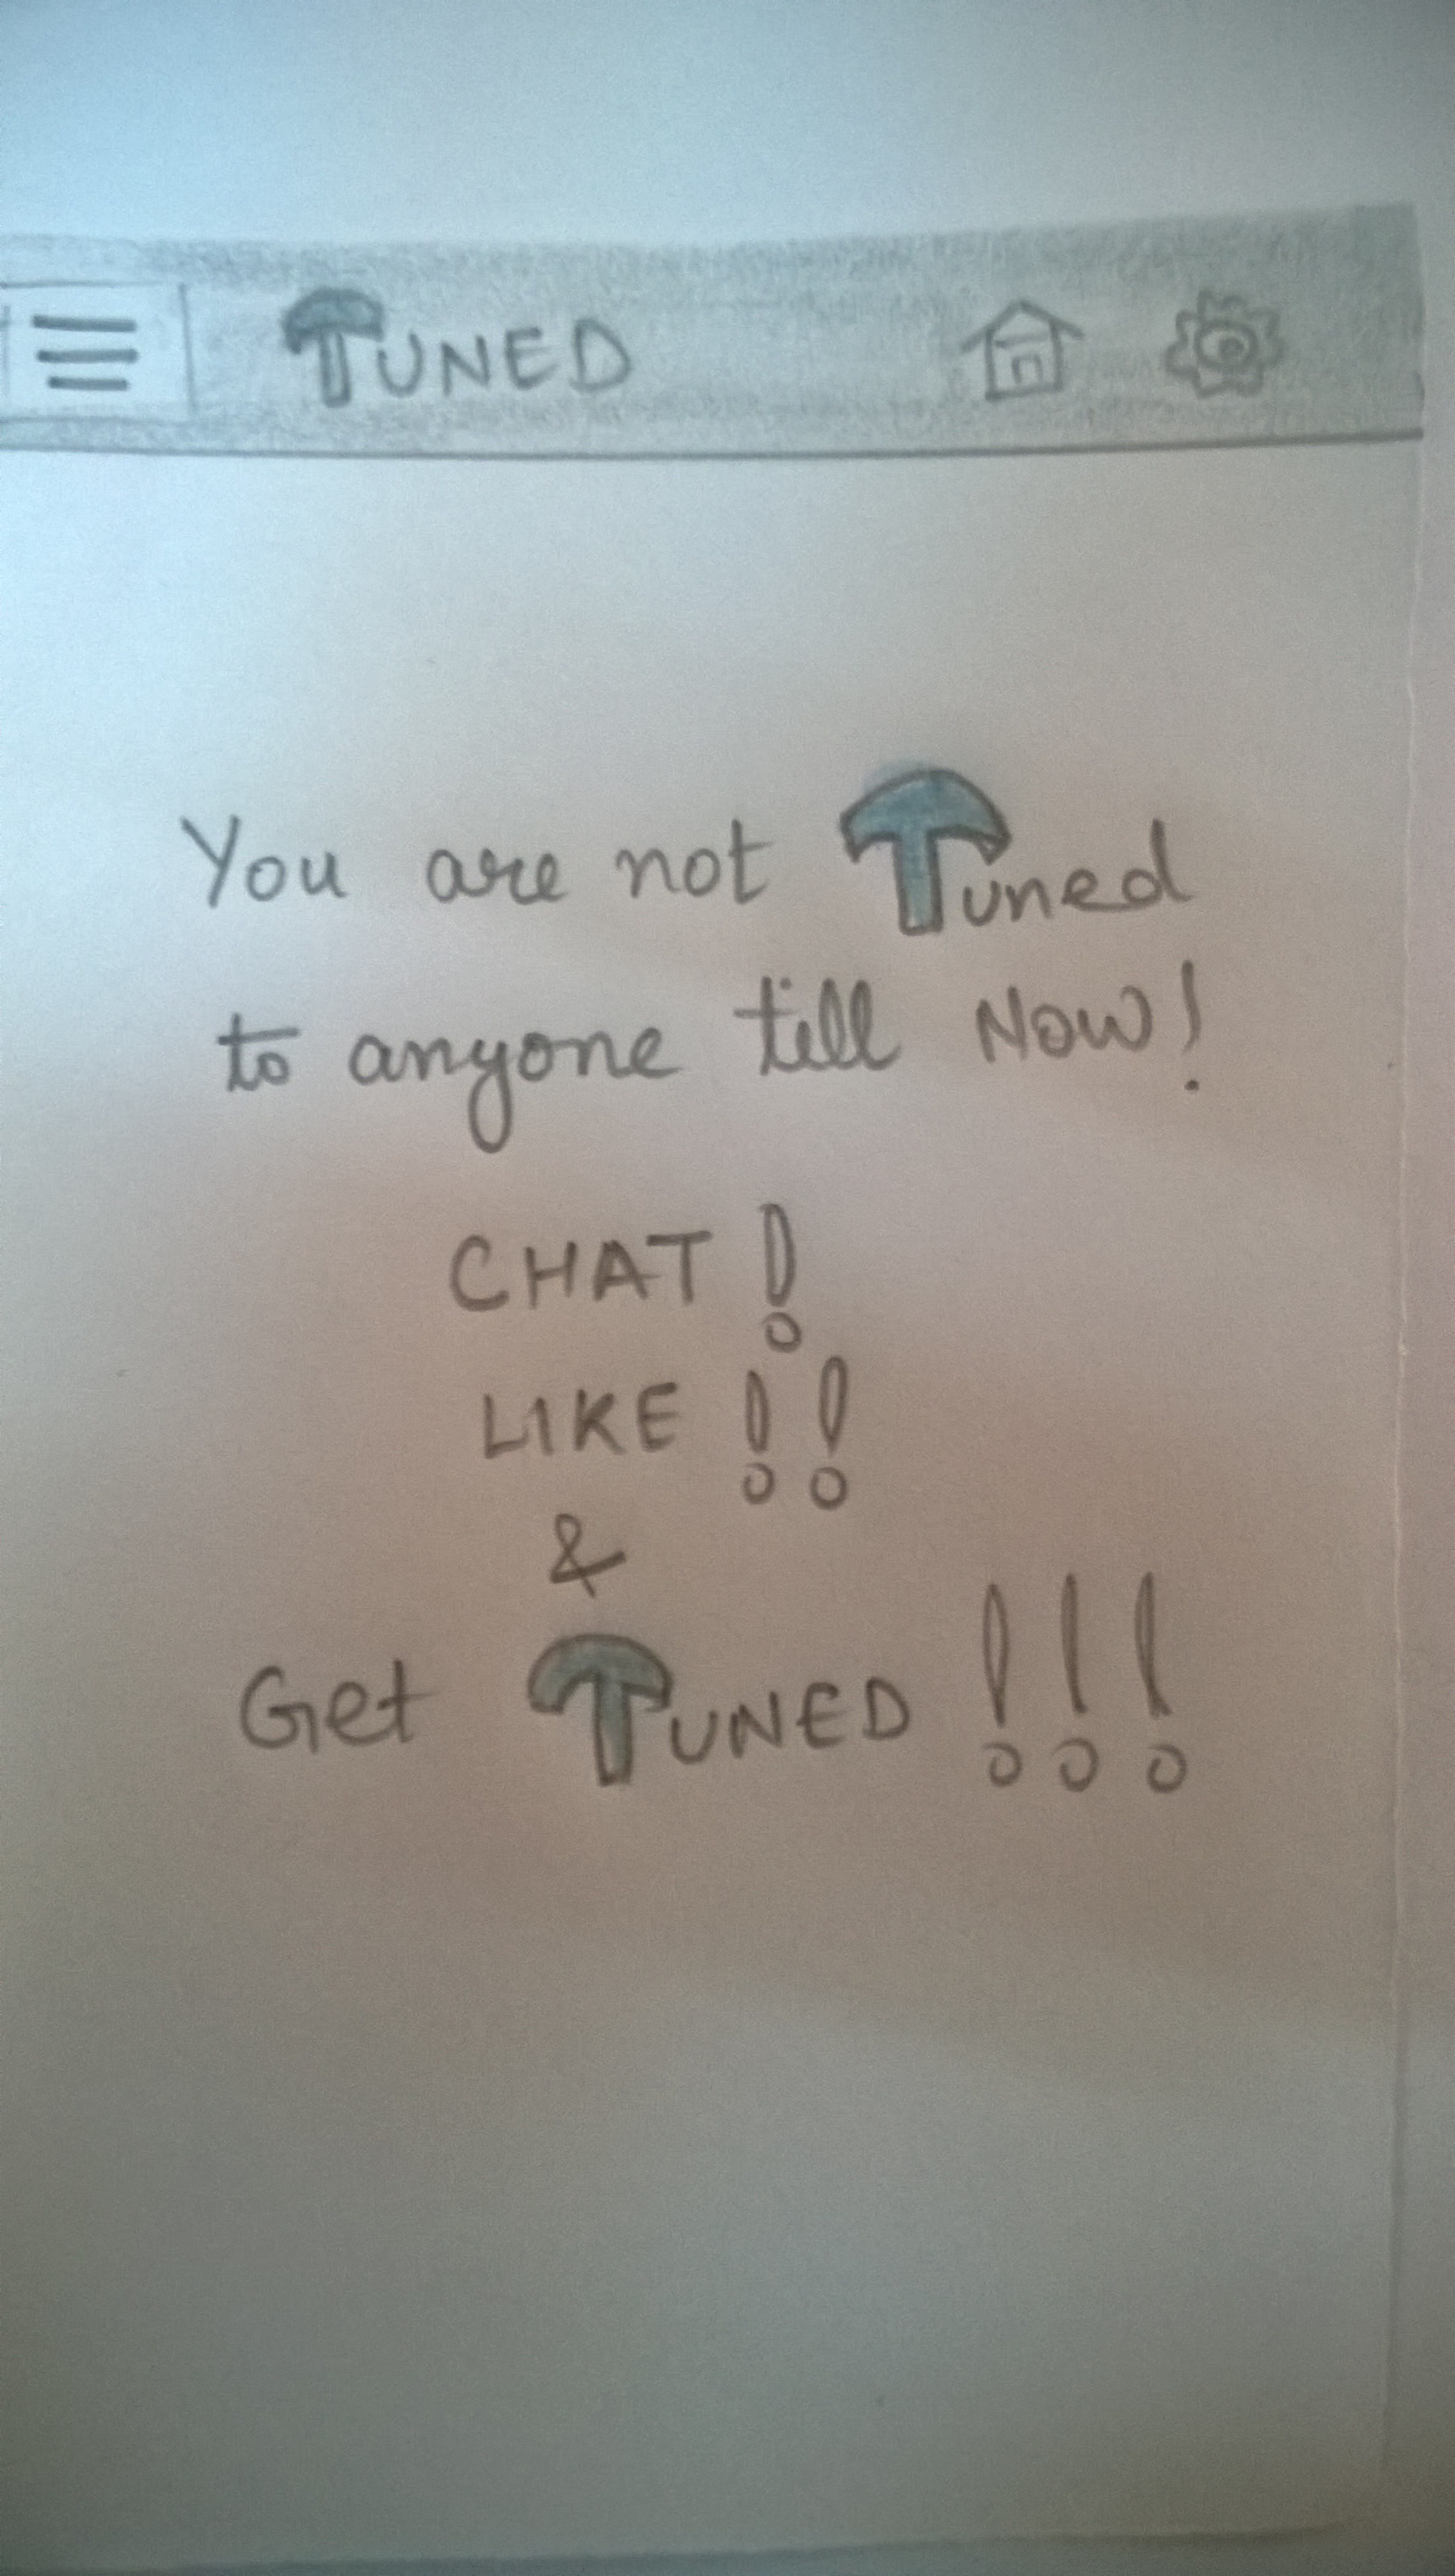 TUNED
You are not Tuned
to anyone till Now!
CHAT !
LIKE !!
&
Get TUNED !!!